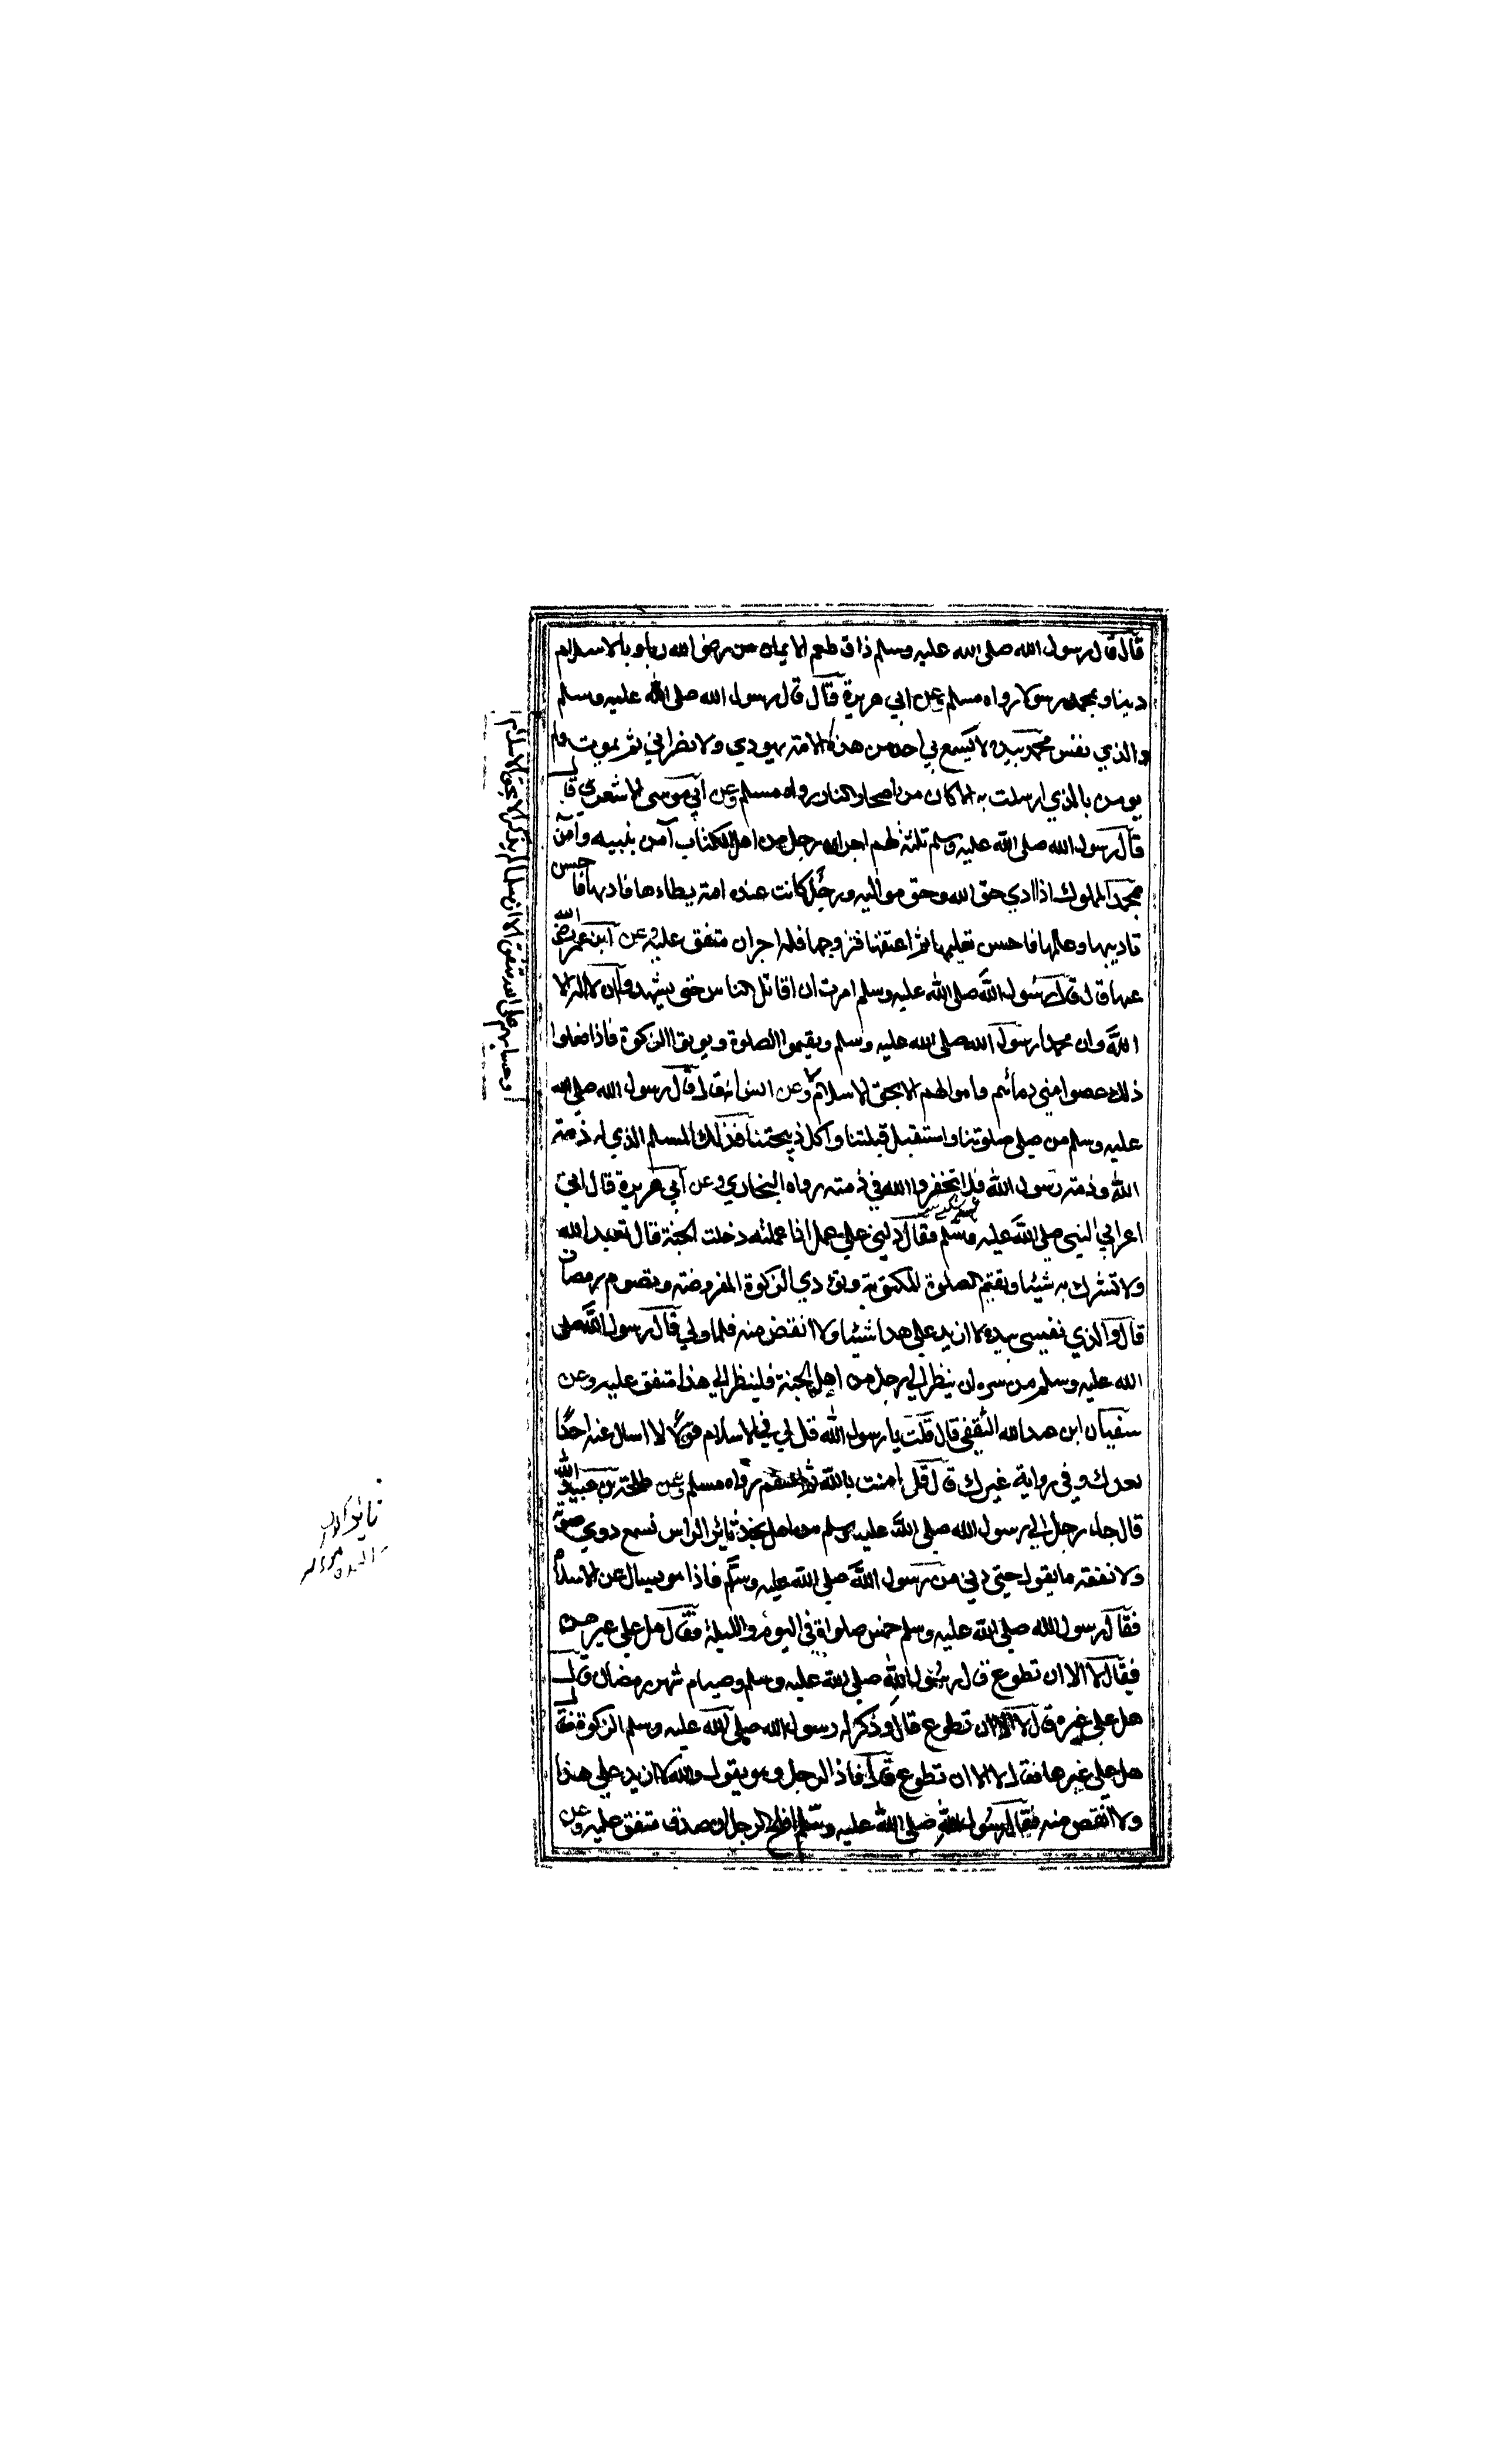 قال قال رسول الله صلى الله عليه وسلم ذاق طعم الايمان من رضى الله ربا وبالاسلام
دينا وبمحمد رسولا رواه مسلم وعن ابي هريرة قال قال رسول الله صلى الله عليه وسلم
والذي نفس محمد بيده لا يسمع بي احد من هذه الامة يهودي ولا نصراني ثم يموت ولم
يومن بالذي ارسلت به الا كان من اصحاب النار رواه مسلم وعن ابي موسى الاشعري قال
قال رسول الله صلى الله عليه وسلم ثلثة لهم اجران رجل من اهل الكتاب آمن بنبيه وآمن
بمحمد المملوك اذا ادي حق الله وحق مواليه ورجل كانت عنده امة يطاءها فادبها فاحسن
تاديبها وعلمها فاحسن تعليمها ثم اعتقها فتزوجها فله اجران متفق عليه وعن ابن عمر رضي الله
عنها قال قال رسول الله صلى الله عليه وسلم امرت ان اقاتل الناس حتى يشهدوا ان لا اله الا
الله وان محمدا رسول الله صلى الله عليه وسلم ويقيموا الصلوة ويوتوا الزكوة فاذا فعلوا
ذلك عصموا مني دمائهم واموالهم الا بحق الاسلام وعن انس انه قال قال رسول الله صلى الله
عليه وسلم من صلى صلوتنا واستقبل قبلتنا واكل ذبيحتنا فذلك المسلم الذي له ذمة
الله وذمة رسول الله فلا تخفروا الله في ذمته رواه البخاري وعن ابي هريرة قال اتى
اعرابي النبي صلى الله عليه وسلم فقال دلني على عمل اذا عملته دخلت الجنة قال تعبد الله
ولا تشرك به شيئا وتقيم الصلوة المكتوبة وتؤدي الزكوة المفروضة وتصوم رمضان
قال والذي نفسي بيده لا ازيد على هذا شيئا ولا انقص منه فلما ولي قال رسول الله صلى
الله عليه وسلم من سره ان ينظر الي رجل من اهل الجنة فلينظر الي هذا متفق عليه وعن
سفيان ابن عبد الله الثقفي قال قلت يا رسول الله قل لي في الاسلام قولا لا اسال عنه احدا
بعدك وفي رواية غيرك قال قل امنت بالله ثم استقم رواه مسلم وعن طلحة بن عبيد الله
قال جاء رجل الي رسول الله صلى الله عليه وسلم من اهل نجد ثائر الراس نسمع دوي صوته
ولا نفقه ما يقول حتى دني من رسول الله صلى الله عليه وسلم فاذا هو يسال عن الاسلام
فقال رسول الله صلى الله عليه وسلم خمس صلواة في اليوم والليلة فقال هل علي غيرهن
فقال لا الا ان تطوع قال رسول الله صلى الله عليه وسلم وصيام شهر رمضان قال
هل علي غيره قال لا الا ان تطوع قال وذكر له رسول الله صلى الله عليه وسلم الزكوة فقال
هل علي غيرها فقال لا الا ان تطوع قال فاذ الرجل وهو يقول والله لا ازيد على هذا
ولا انقص منه فقال رسول الله صلى الله عليه وسلم افلح الرجل ان صدق متفق عليه وعن
وحسابهم على الله متفق الا ان مسلما لم يذكر الا بحق الاسلام